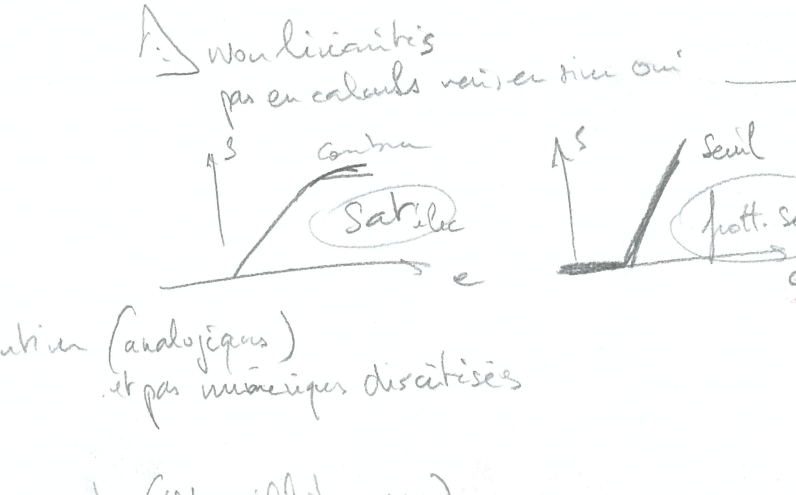 non linéarités
pas en calculs mais en simu oui
S
S
Seuil
Sat élec
frott. Se
e
(analogiques)
et pas numériques discrétisées